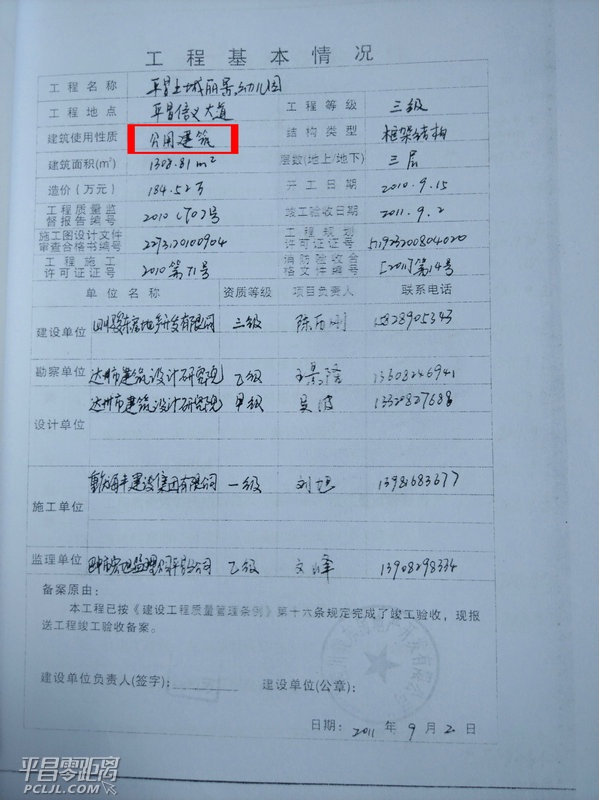 工程基本情况
工程名称 平昌土城丽景幼儿园
工程地点 平昌信义大道 工程等级 三级
建筑使用性质 公用建筑 结构类型 框架结构
建筑面积(㎡) 1308.81m² 层数(地上/地下) 三层
造价(万元) 184.52万 开工日期 2010.9.15
工程质量监督报告编号 2010 CT02号 竣工验收日期 2011.9.2
施工图设计文件审查合格书编号 2273120100904 工程规划许可证证号 511923200804020
工程施工许可证证号 2010第71号 消防验收合格文件编号 [2011]第14号
单位名称 资质等级 项目负责人 联系电话
建设单位 四川骏东房地产开发有限公司 三级 陈 刚 15828905343
勘察单位 达州市建筑设计研究院 乙级 王 隆 13608246941
达州市建筑设计研究院 甲级 吴波 13320827688
设计单位
重庆海丰建设集团有限公司 一级 刘旭 13981683677
施工单位
监理单位 监理 平昌分公司 乙级 文峰 13908298334
备案原由:
本工程已按《建设工程质量管理条例》第十六条规定完成了竣工验收，现报
送工程竣工验收备案。
建设单位负责人(签字): 建设单位(公章):
日期: 2011 年 9 月 2 日
平昌零距离
PCLJL.COM